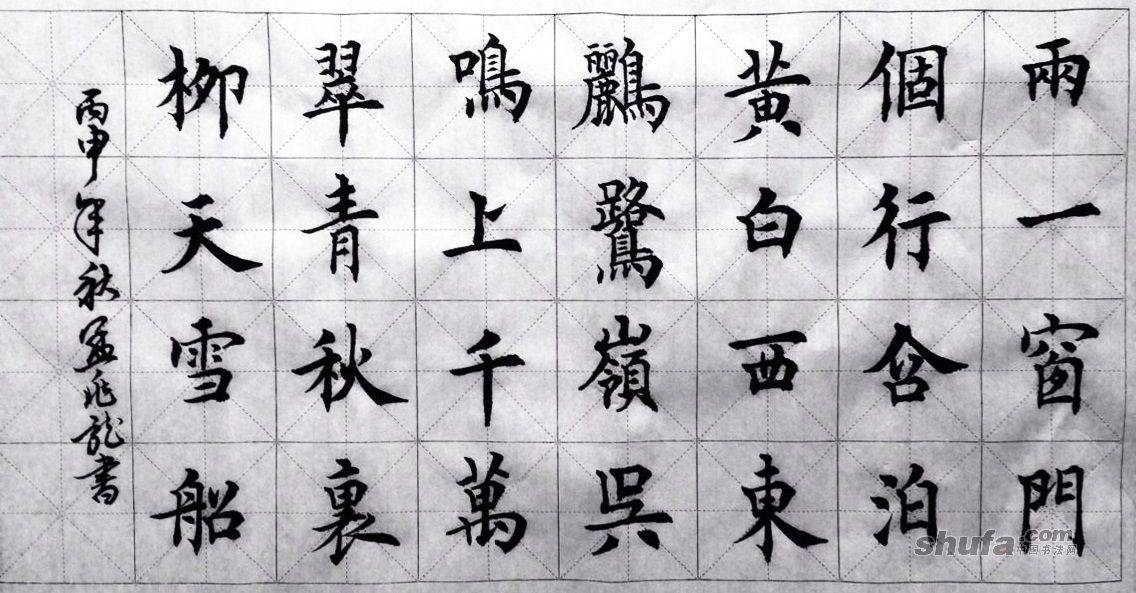 兩個黄鸝鳴翠柳
一行白鷺上青天
窗含西嶺千秋雪
門泊東吳萬裏船
丙申年秋孟兆龍書
shufa.com
中国书法网